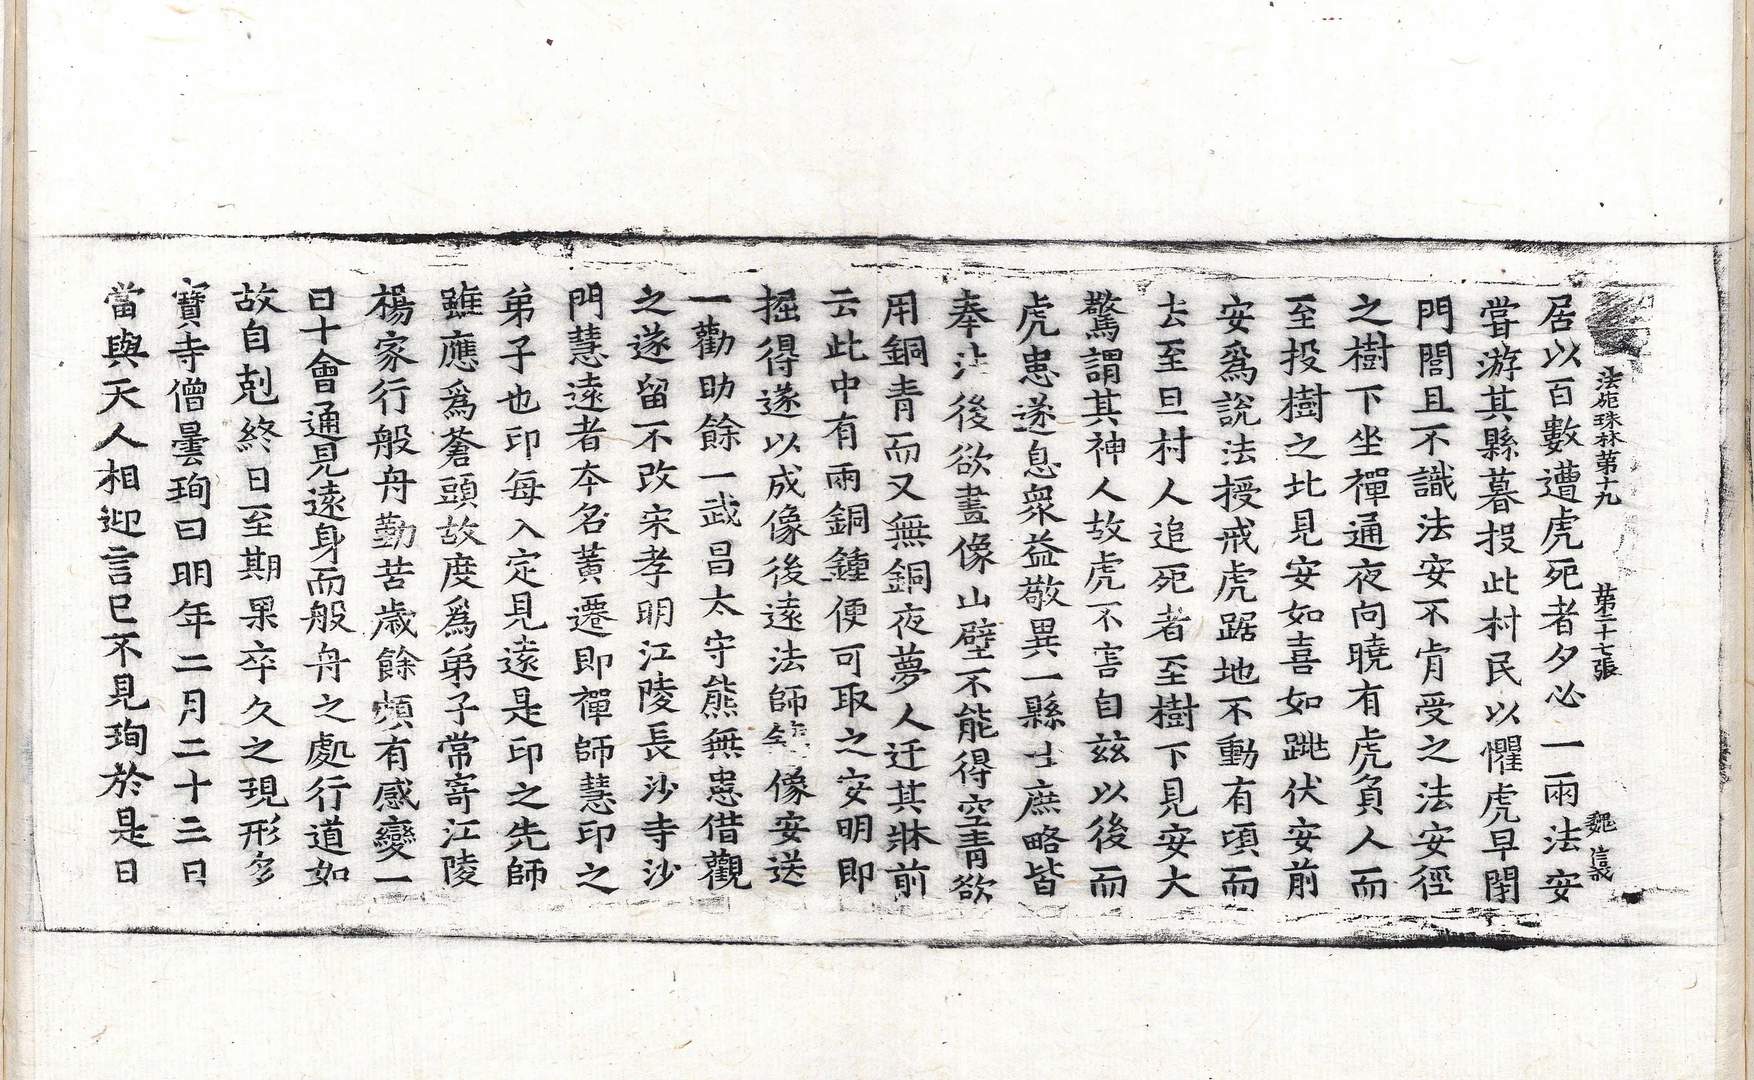 法苑珠林第十九 第二十七張 魏信義
居以百數遭虎死者夕必一兩法安
甞游其縣暮投此村民以懼虎早閇
門閭且不識法安不肯受之法安徑
之樹下坐禪通夜向曉有虎負人而
至投樹之北見安如喜如跳伏安前
安爲說法授戒虎踞地不動有頃而
去至旦村人追死者至樹下見安大
驚謂其神人故虎不害自玆以後而
虎患遂息衆益敬異一縣士庶略皆
奉法後欲畫像山壁不能得空青欲
用銅青而又無銅夜夢人迂其牀前
云此中有兩銅鍾便可取之安明即
掘得遂以成像後遠法師像安送
一勸助餘一武昌太守熊無患借觀
之遂留不改宋孝明江陵長沙寺沙
門慧遠者本名黃遷即禪師慧印之
弟子也印每入定見遠是印之先師
雖應爲蒼頭故度爲弟子常寄江陵
楊家行般舟勤苦歲餘頗有感變一
日十會通見遠身而般舟之處行道如
故自剋終日至期果卒久之現形多
寶寺僧曇珣曰明年二月二十三日
當與天人相迎言已不見珣於是日